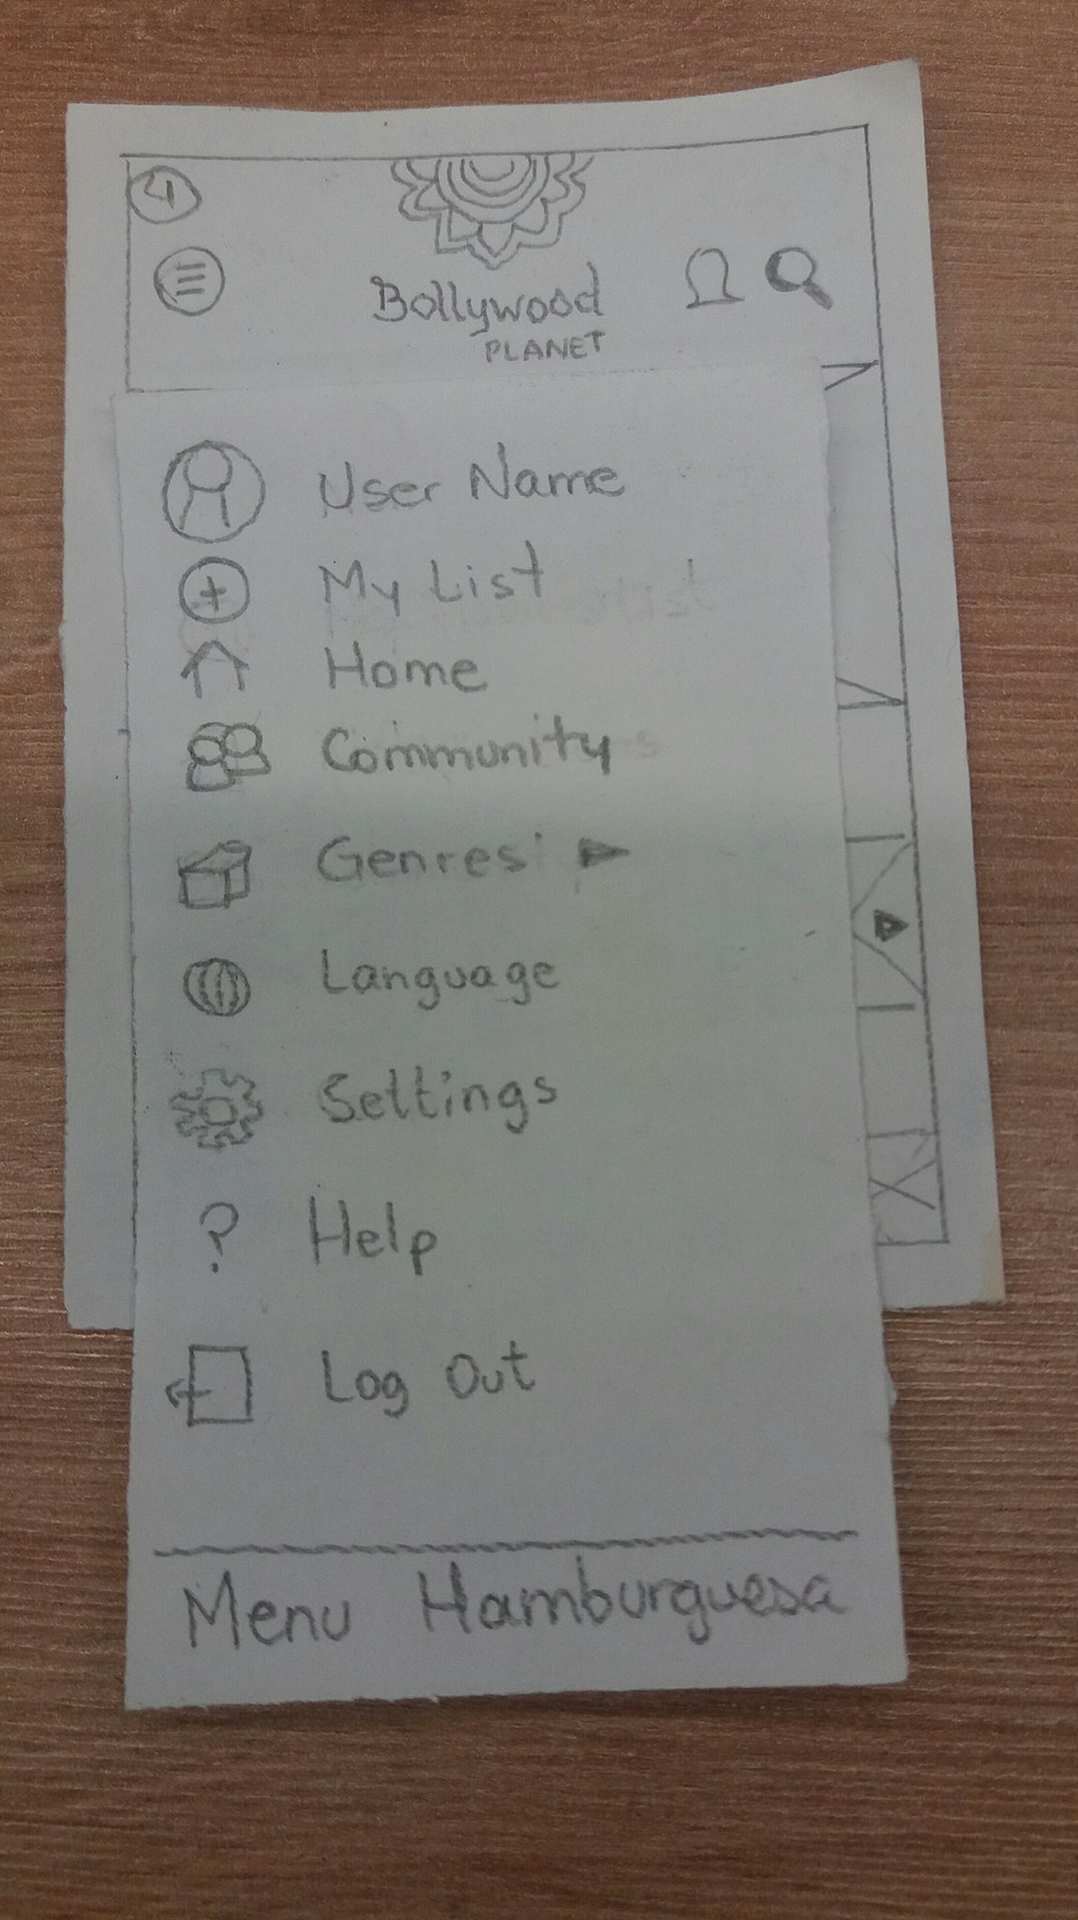 4
Bollywood
PLANET
User Name
My List
Home
Community
Genres
Language
Settings
? Help
Log Out
Menu Hamburguesa